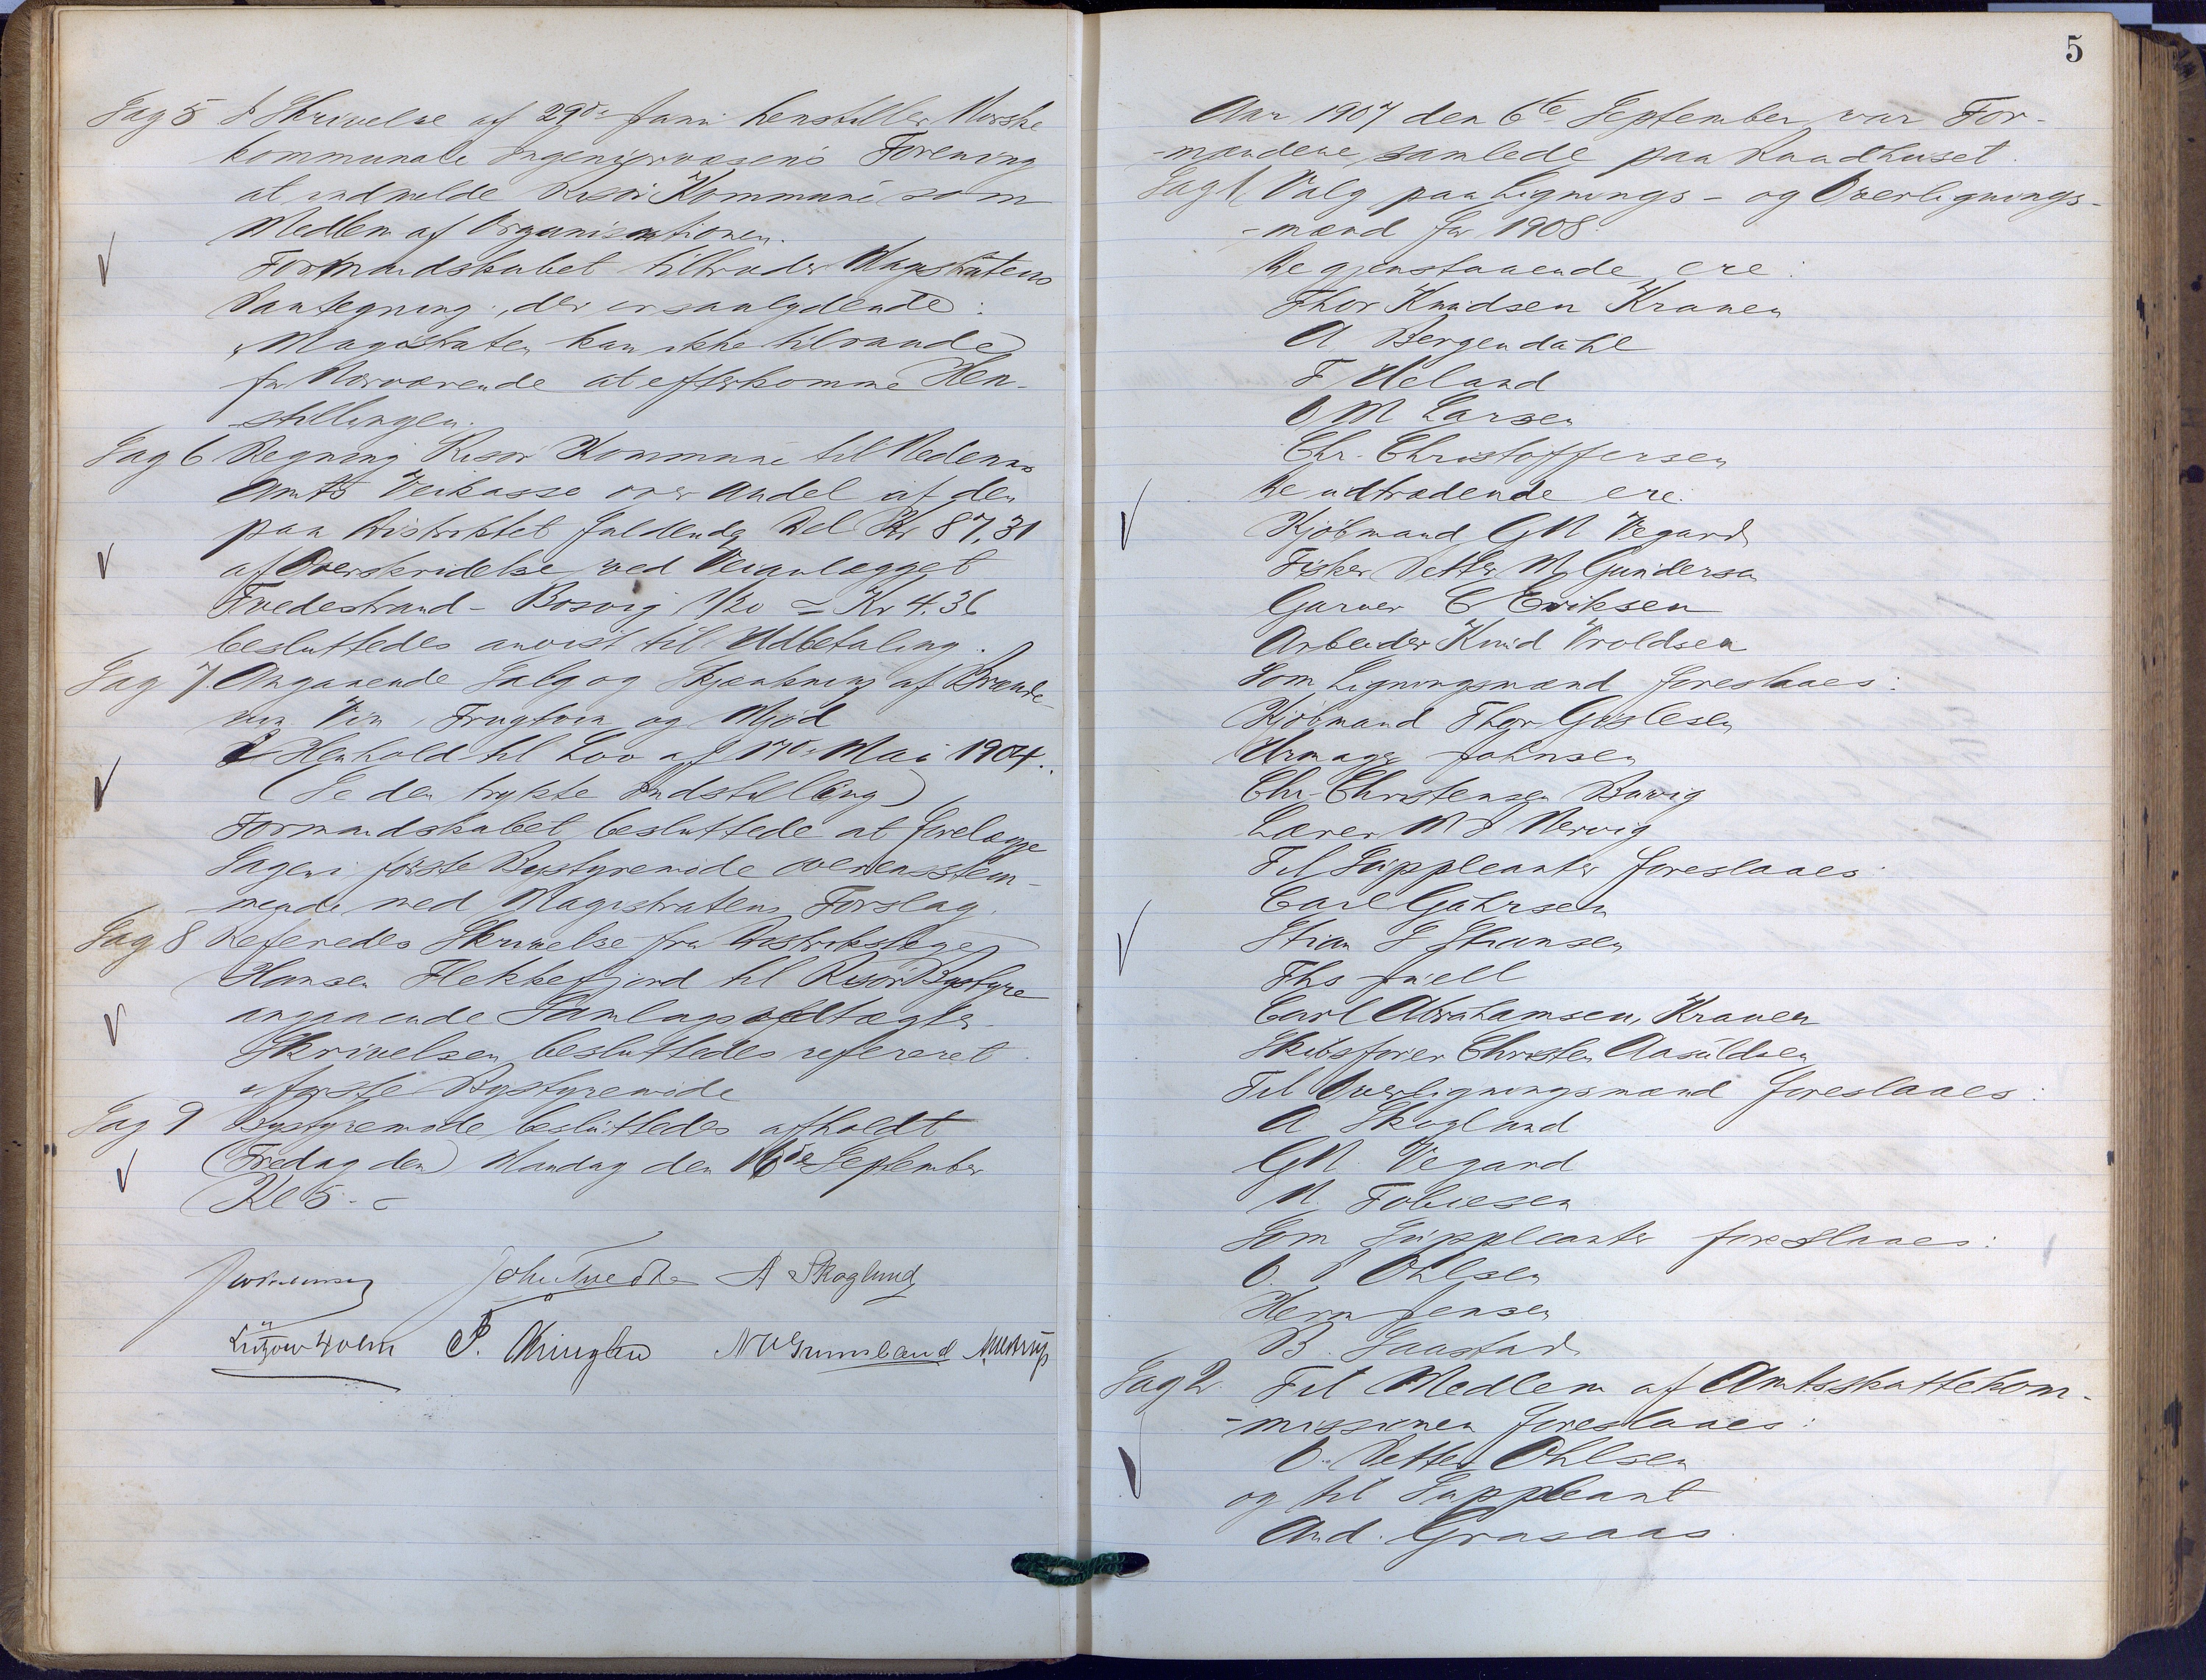 Sag 5 I Skrivelse af 29de Juni henstiller Norske
kommunale Ingeniørvæsens Forening
at indmelde Risør Kommune som
Medlem af Organisationen.
Formandskabet tiltræder Magistratens
Paategning, der er saalydende:
"Magistraten kan ikke tilraade
for Nærværende at efterkomme Hen-
-stillingen.
Sag 6 Regning Risør Kommune til Nedenæs
Amts Veikasse over Andel af den
paa Distriktet faldende Del Kr 87,31
af Overskridelse ved Veianlægget
Tvedestrand - Bosvig 1/20 = Kr 4.36
besluttedes anvist til Udbetaling.
Sag 7. Angaaende Salg og Skjænkning af Brænde-
vin Vin, Frugtvin og Mjød
I Henhold til Lov af 17de Mai 1904.
(Se den trykte Indstilling)
Formandskabet besluttede at forelægge
Sagen i første Bystyremøde overensstem-
-mende med Magistratens Forslag.
Sag 8 Referedes Skrivelse fra Distriktslæge
Hansen Flekkefjord til Risør Bystyre
angaaende Samlagsvedtægter.
Skrivelsen besluttedes refereret
i første Bystyremøde
Sag 9 Bystyremøde besluttedes afholdt
(Fredag den) Mandag den 16de September
Kl 5. -
John Tvedte A Skoglund
Lützow Holm P.
5
Aar 1907 den 6te September var For-
-mændene samlede paa Raadhuset.
Sag 1 Valg paa Lignings- og Overlignings-
-mænd for 1908.
De gjenstaaende ere:
Thor Knudsen Kranen
A Bergendahl
F Meland
O M Larsen
Chr. Christoffersen
De udtrædende ere.
Kjøbmand G N Vegard
Fisker Petter M Gundersen
Garver C Eriksen
Arbeider Knud Vroldsen
Som Ligningsmænd foreslaaes:
Kjøbmand Thor Gislesen
Urmager Johnsen
Chr. Christensen Buvig
Lærer
Til Suppleanter foreslaaes
Carl Gahrsen
Stian S Stiansen
Ths Juell
Carl Abrahamsen, Kranen
Skibsfører Christen Aasuldsen
Til Overligningsmænd foreslaaes:
A Skoglund
G N. Vegard
N. Tobiesen
Som Suppleanter foreslaaes:
O. P Ohlsen
Herm Jensen
B. Saastad
Sag 2. Til Medlem af Amtsskattekom-
-missionen foreslaaes:
O. Petter Ohlsen
og til Suppleant
And. Grasaas.